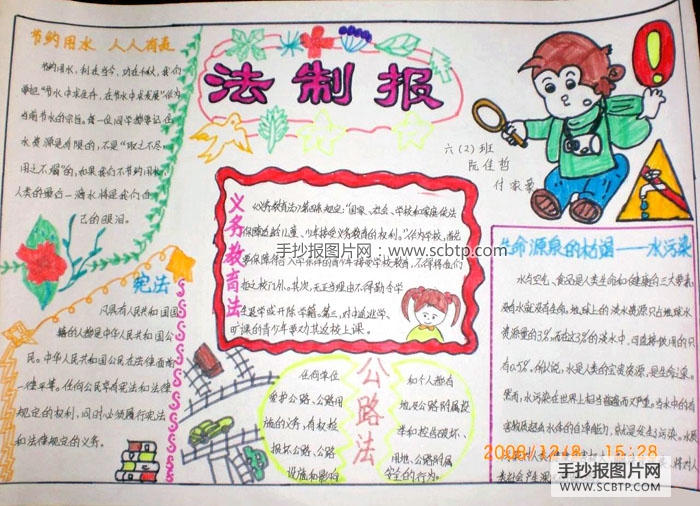 节约用水 人人有责
节约用水，利在当今，功在千秋，我们
要把“节水中求生存，在节水中求发展”作为
当前节水的宗旨。每一位同学都要记住
水资源是有限的，不是“取之不尽
用之不竭”的，如果我们不节约用水，
人类的最后一滴水将是我们自
己的眼泪。
法制报
六（2）班
阮佳哲
义务教育法
《义务教育法》第四条规定：“国家、社会、学校和家庭依法
保障适龄儿童、少年接受义务教育的权利。”作为学校，首先
要保障符合入学条件的青少年接受学校教育，不得将他们
拒之校门外。其次，无正当理由不得勒令学
生退学或开除学籍。第三，对中途退学、
旷课的青少年要动其返校上课。
手抄报图片网：www.scbtp.com
宪法
凡具有人民共和国国
籍的人都是中华人民共和国公
民。中华人民共和国公民在法律面前
一律平等。任何公民享有宪法和法律
规定的权利，同时必须履行宪法
和法律规定的义务。
公路法
任何单位
爱护公路、公路用
施的义务，有权检
损坏公路、公路
设施和影响
和个人都有
地及公路附属设
举和控告破坏、
用地、公路附属
安全的行为。
生命源泉的枯竭——水污染
水与空气、食品是人类生命和健康的三大要素，
没有水就没有生命。地球上的淡水资源只占地球水
资源量的3%，而在这3%的淡水中，可直接饮用的只
有0.5%。所以说，水是人类的宝贵资源，是生命之泉。
然而，水污染在世界上相当普遍而又严重。当水中的有
害物质超出水体的自净能力，就是发生了污染。
2008/12/8 15:28
手抄报图片网
WWW.SCBTP.COM